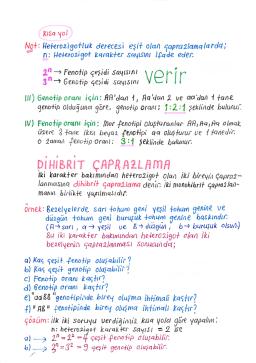 Kısa yol
Not: Heterozigotluk derecesi eşit olan çaprazlamalarda;
n: Heterozigot karakter sayısını ifade eder.
2ⁿ → Fenotip çeşidi sayısını
3ⁿ → Genotip çeşidi sayısını
verir
III) Genotip oranı için: AA'dan 1, Aa'dan 2 ve aa'dan 1 tane
genotip olduğuna göre, genotip oranı: 1:2:1 şeklinde bulunur.
IV) Fenotip oranı için: Mor fenotipi oluşturanlar AA, Aa, Aa olmak
üzere 3 tane iken beyaz fenotipi aa oluşturur ve 1 tanedir.
O zaman fenotip oranı: 3:1 şeklinde bulunur.
DİHİBRİT ÇAPRAZLAMA
İki karakter bakımından heterozigot olan iki bireyin çapraz-
lanmasına dihibrit çaprazlama denir. İki monohibrit çaprazla-
manın birlikte yapılmasıdır.
Örnek: Bezelyelerde sarı tohum geni yeşil tohum genine ve
düzgün tohum geni buruşuk tohum genine baskındır.
(A → sarı, a → yeşil ve B → düzgün, b → buruşuk olsun)
Bu iki karakter bakımından heterozigot olan iki
bezelyenin çaprazlanması sonucunda;
a) Kaç çeşit fenotip oluşabilir?
b) Kaç çeşit genotip oluşabilir?
c) Fenotip oranı kaçtır?
d) Genotip oranı kaçtır?
e) "aaBB" genotipinde birey oluşma ihtimali kaçtır?
f) "AB" fenotipinde birey oluşma ihtimali kaçtır?
Çözüm: İlk iki soruyu verdiğimiz kısa yola göre yapalım:
n: heterozigot karakter sayısı = 2 ise
a) 2ⁿ = 2² = 4 çeşit fenotip oluşabilir.
b) 3ⁿ = 3² = 9 çeşit genotip oluşabilir.